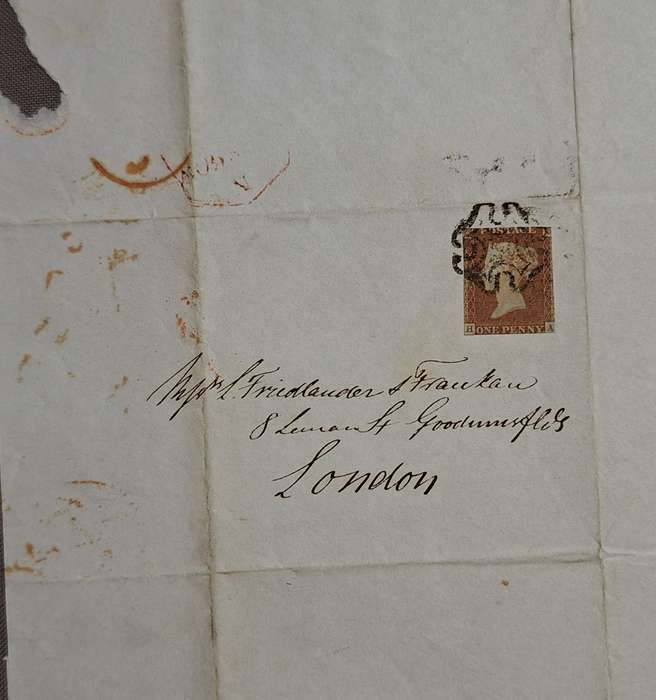 POSTAGE
ONE PENNY
H A
Messrs L. Friedlander & Frankau
8 Leman St Goodmansflds
London